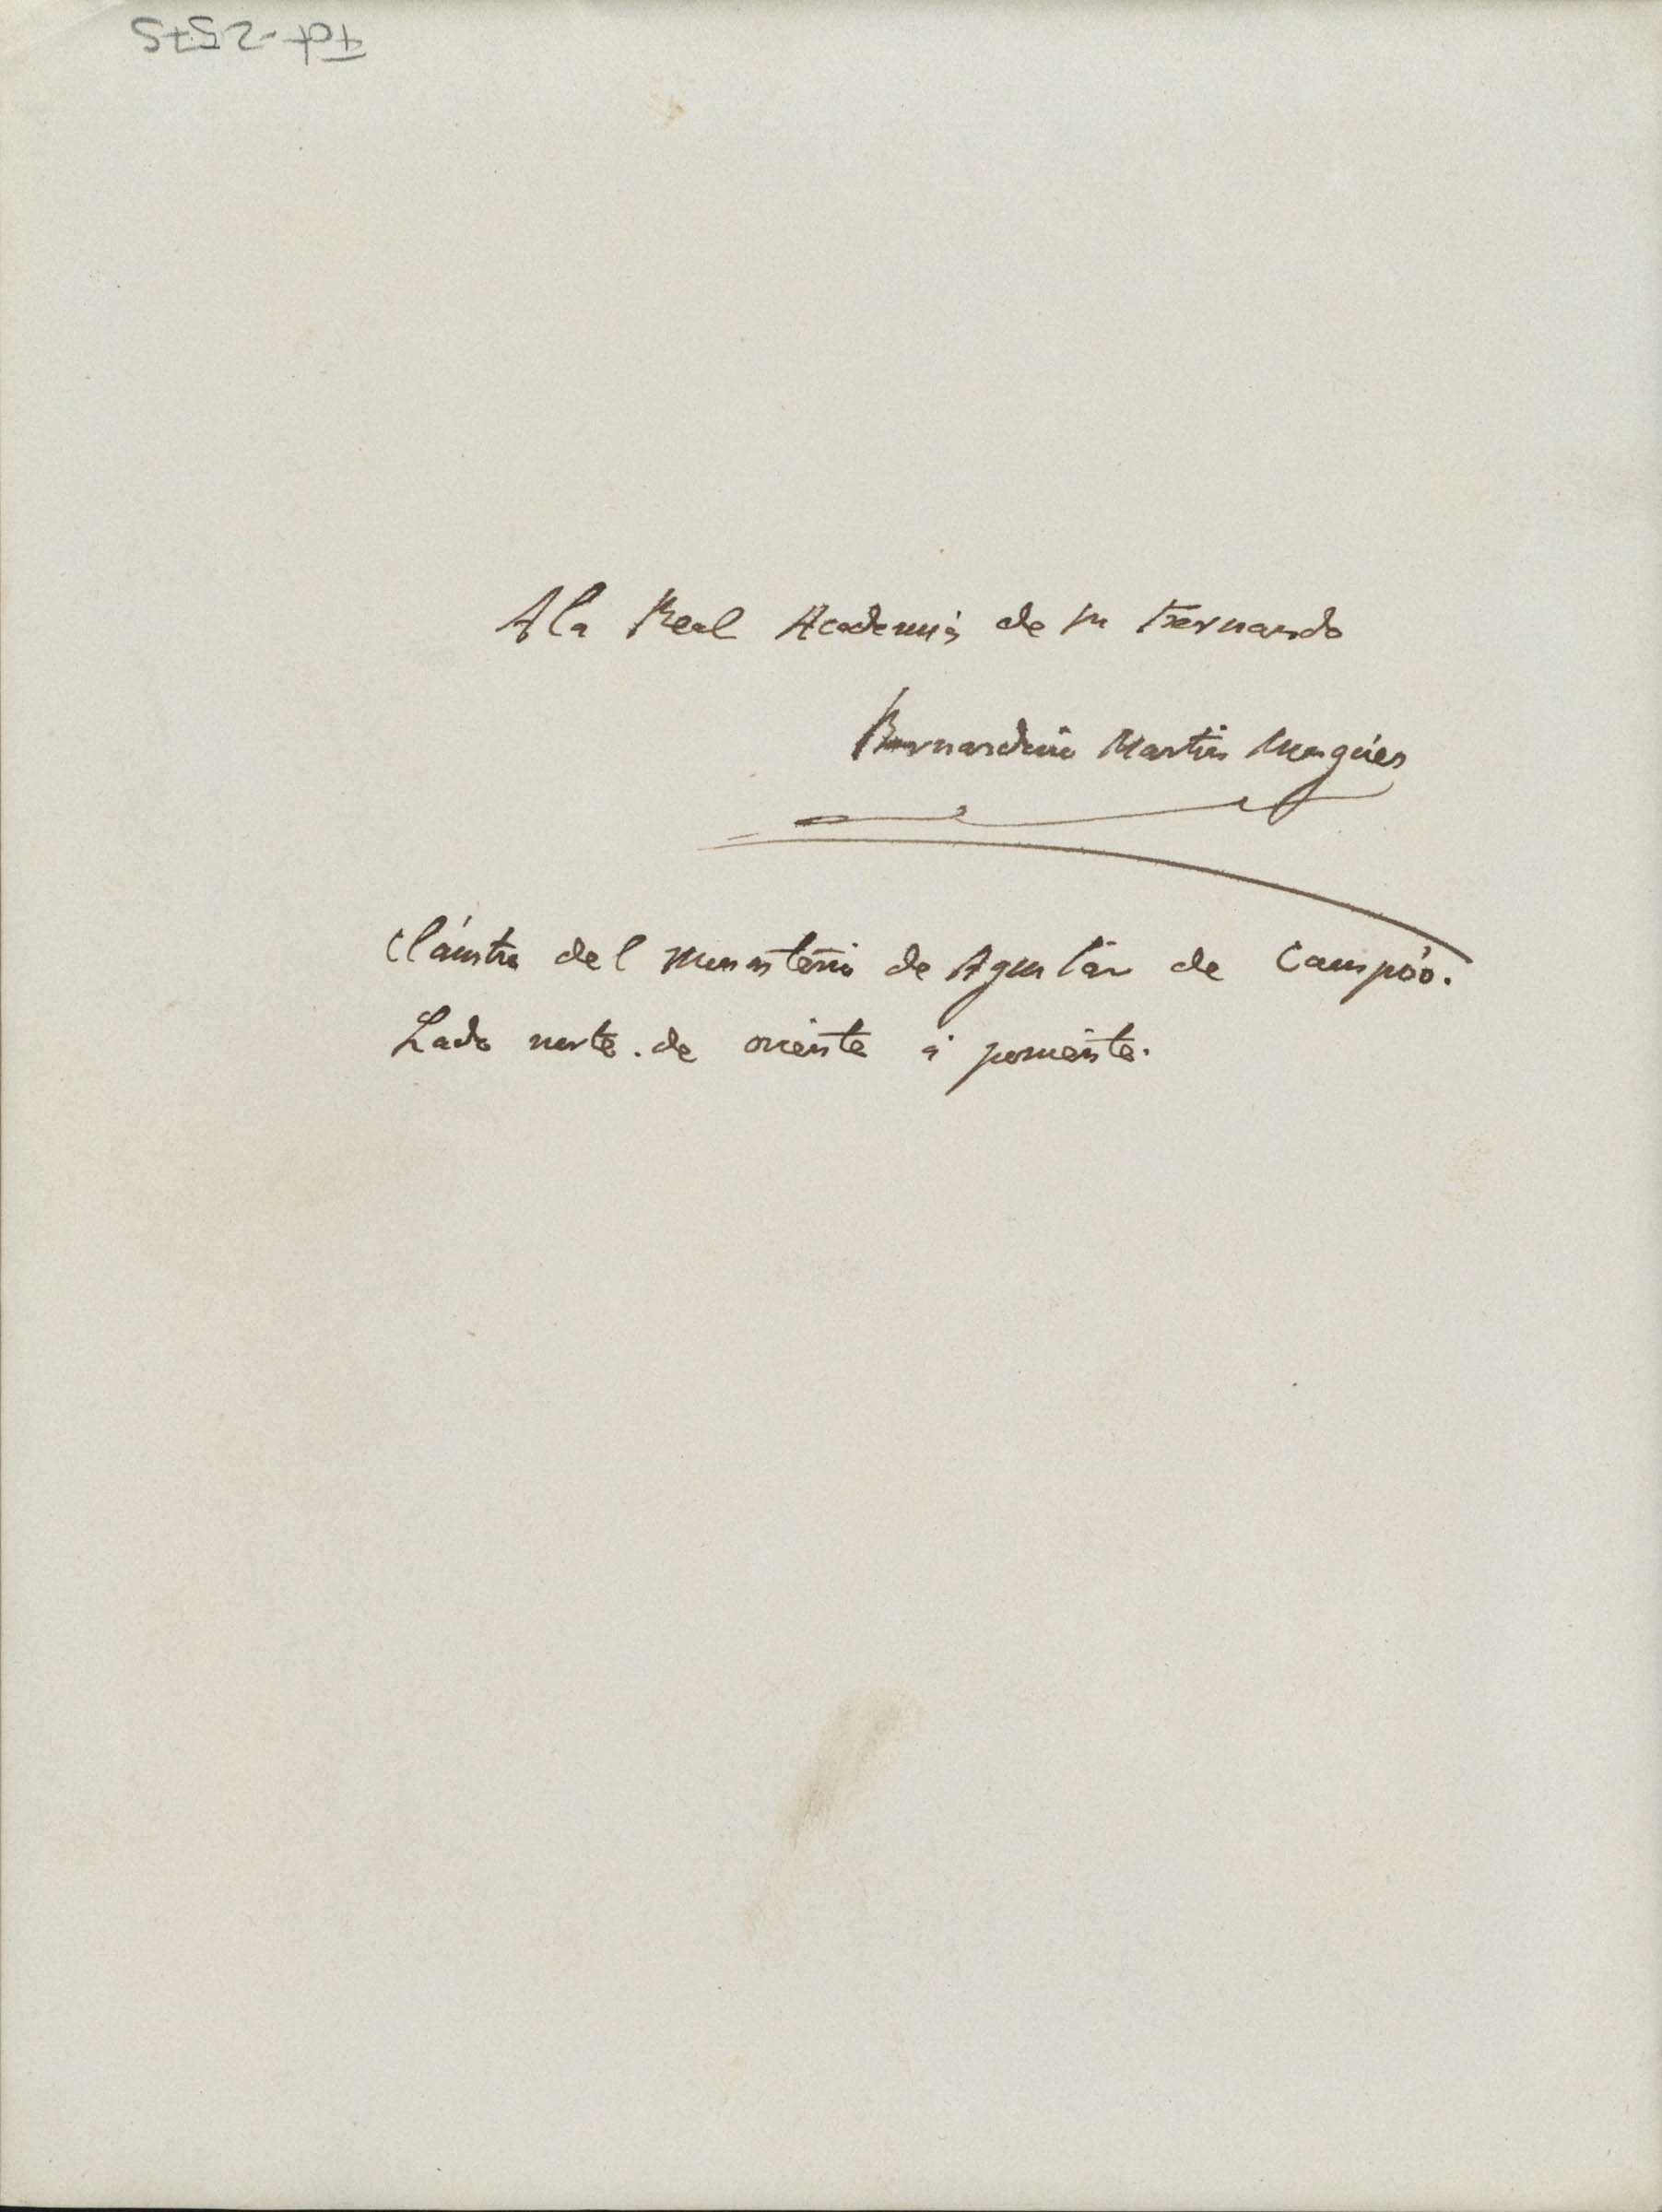 Fot-2575
A la Real Academia de Sn Fernando
Bernardino Martin Minguez
Cláustro del Monasterio de Aguilar de Campóo.
Lado norte. de oriente á poniente.